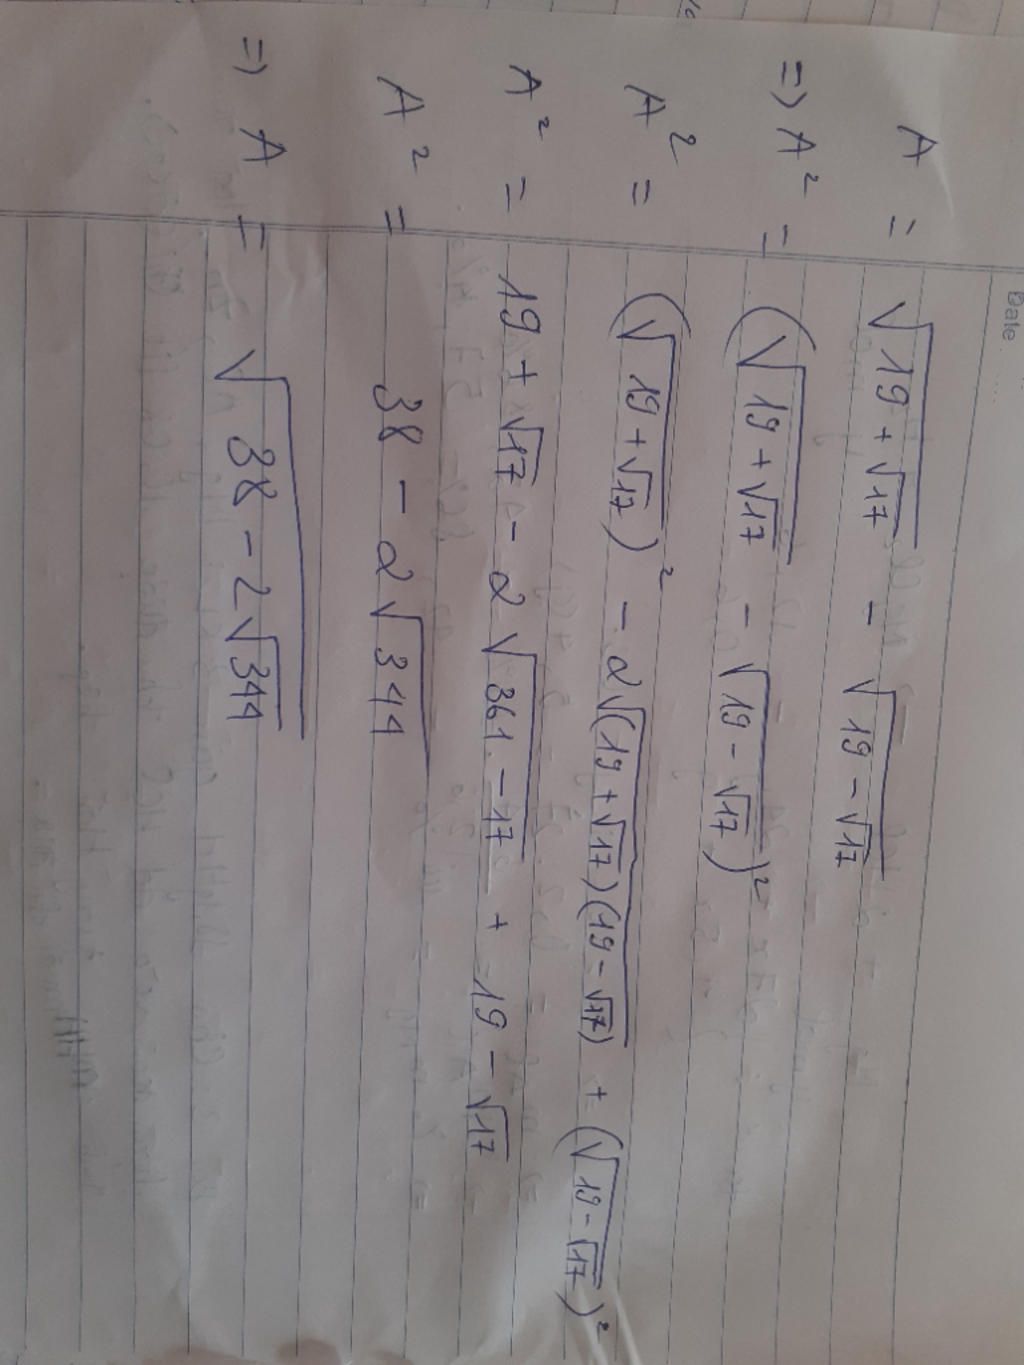 Date
A = √(19 + √17) - √(19 - √17)
=> A² = (√(19 + √17) - √(19 - √17))²
A² = (√(19 + √17))² - 2√((19 + √17)(19 - √17)) + (√(19 - √17))²
A² = 19 + √17 - 2√(361 - 17) + 19 - √17
A² = 38 - 2√344
=> A = √(38 - 2√344)